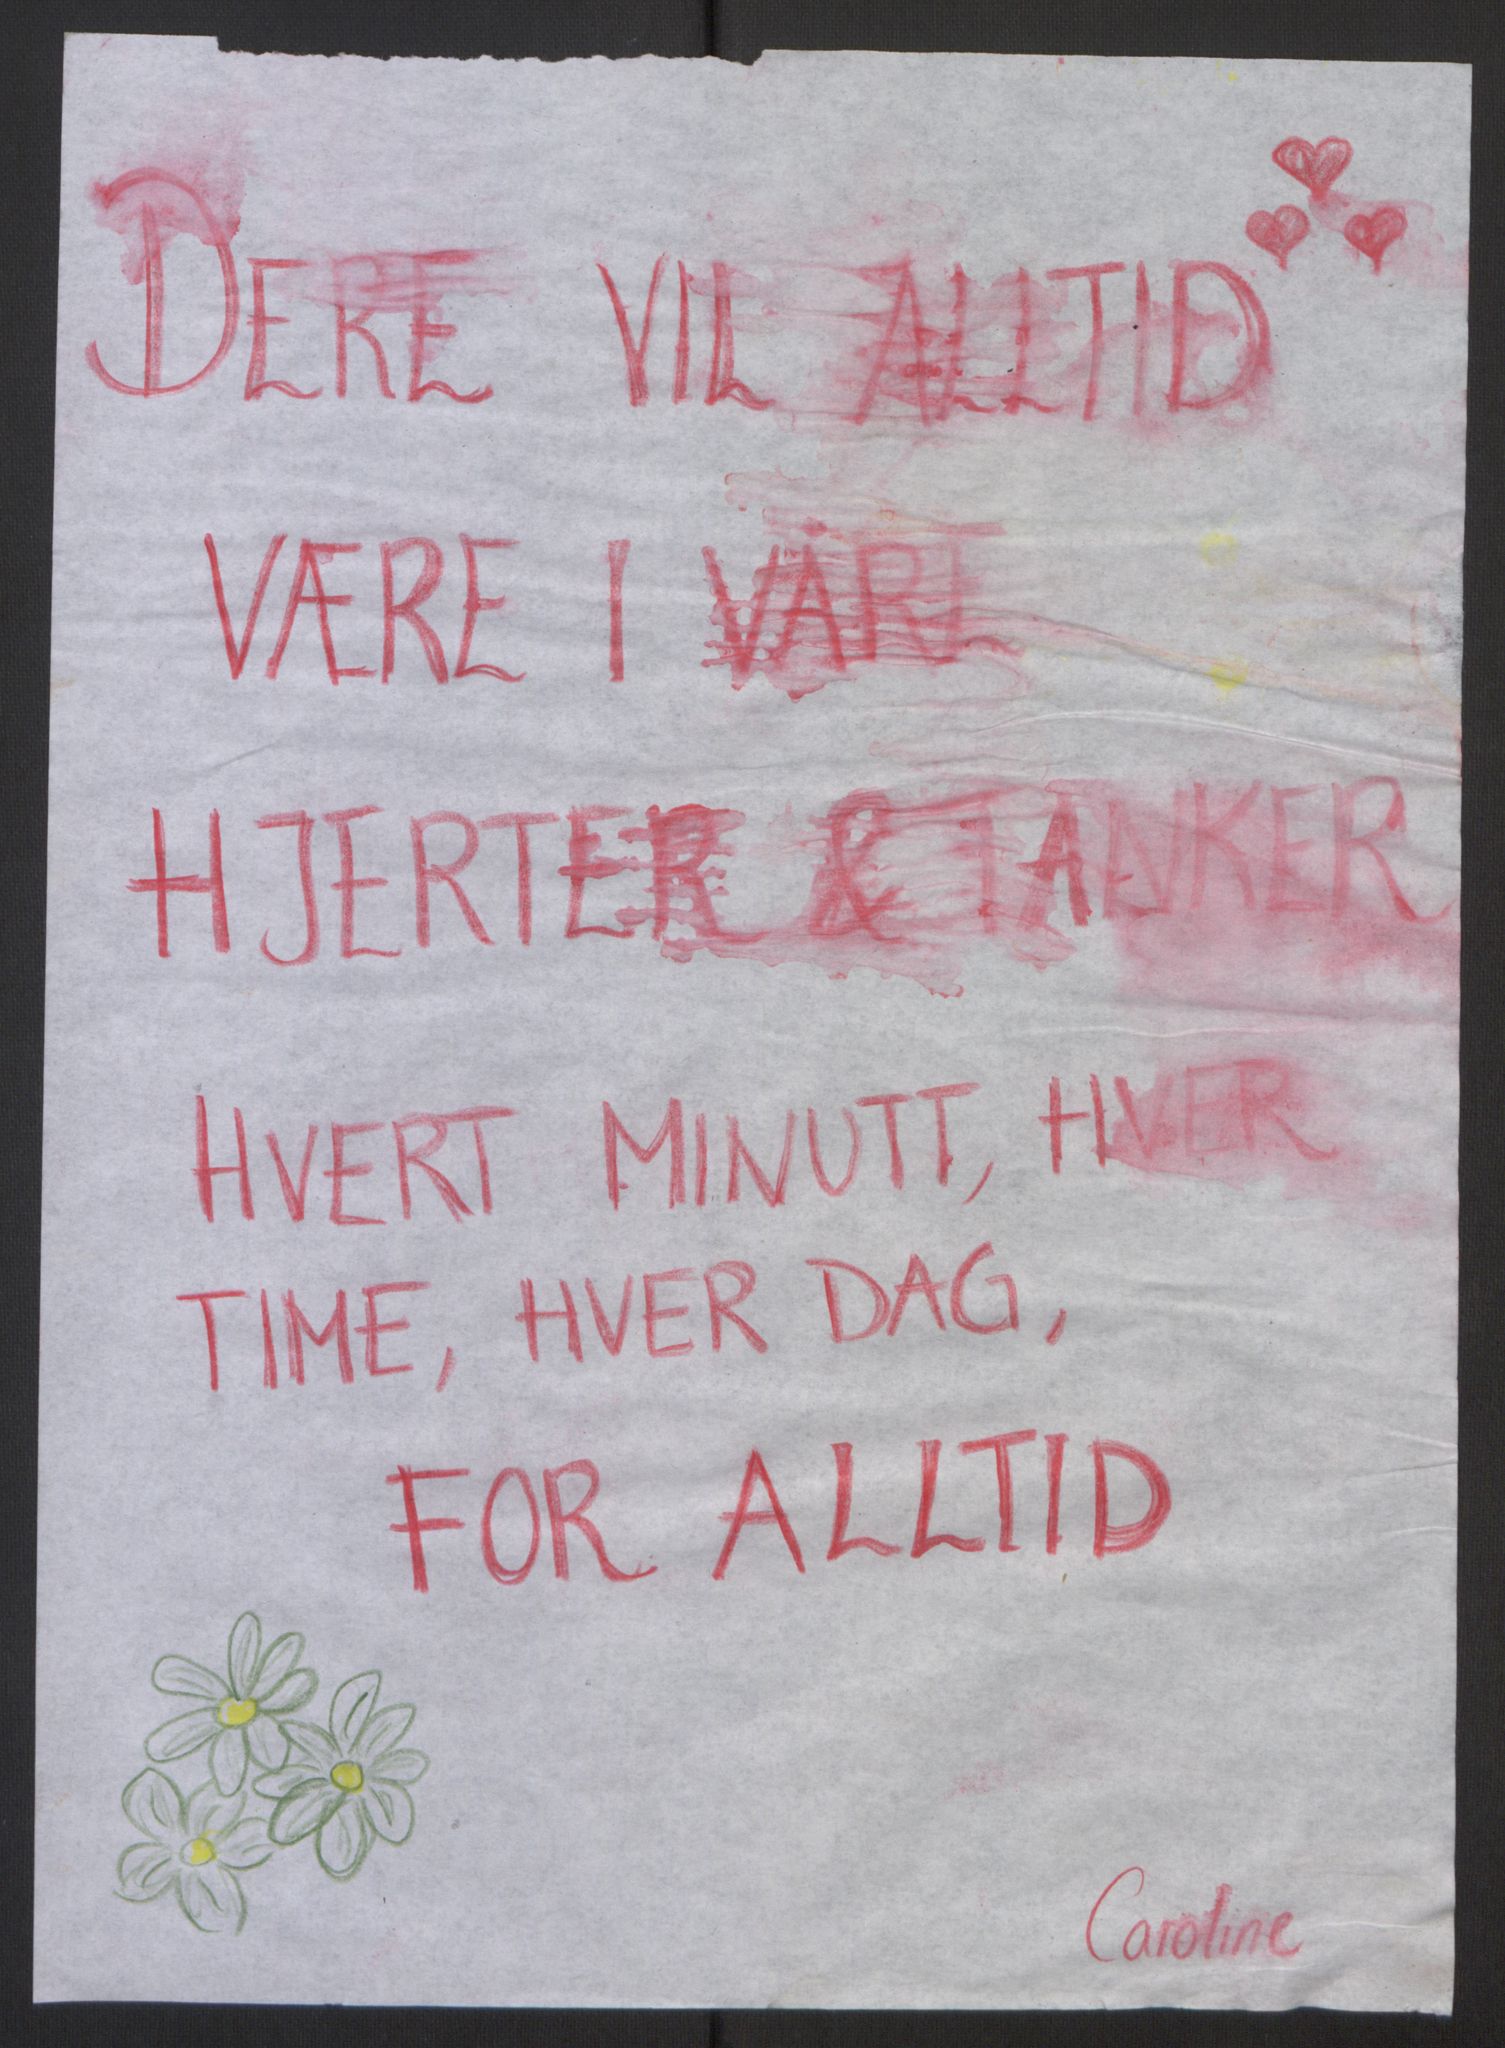 DERE VIL ALLTID
VÆRE I VÅRE
HJERTER & TANKER
HVERT MINUTT, HVER
TIME, HVER DAG,
FOR ALLTID
Caroline